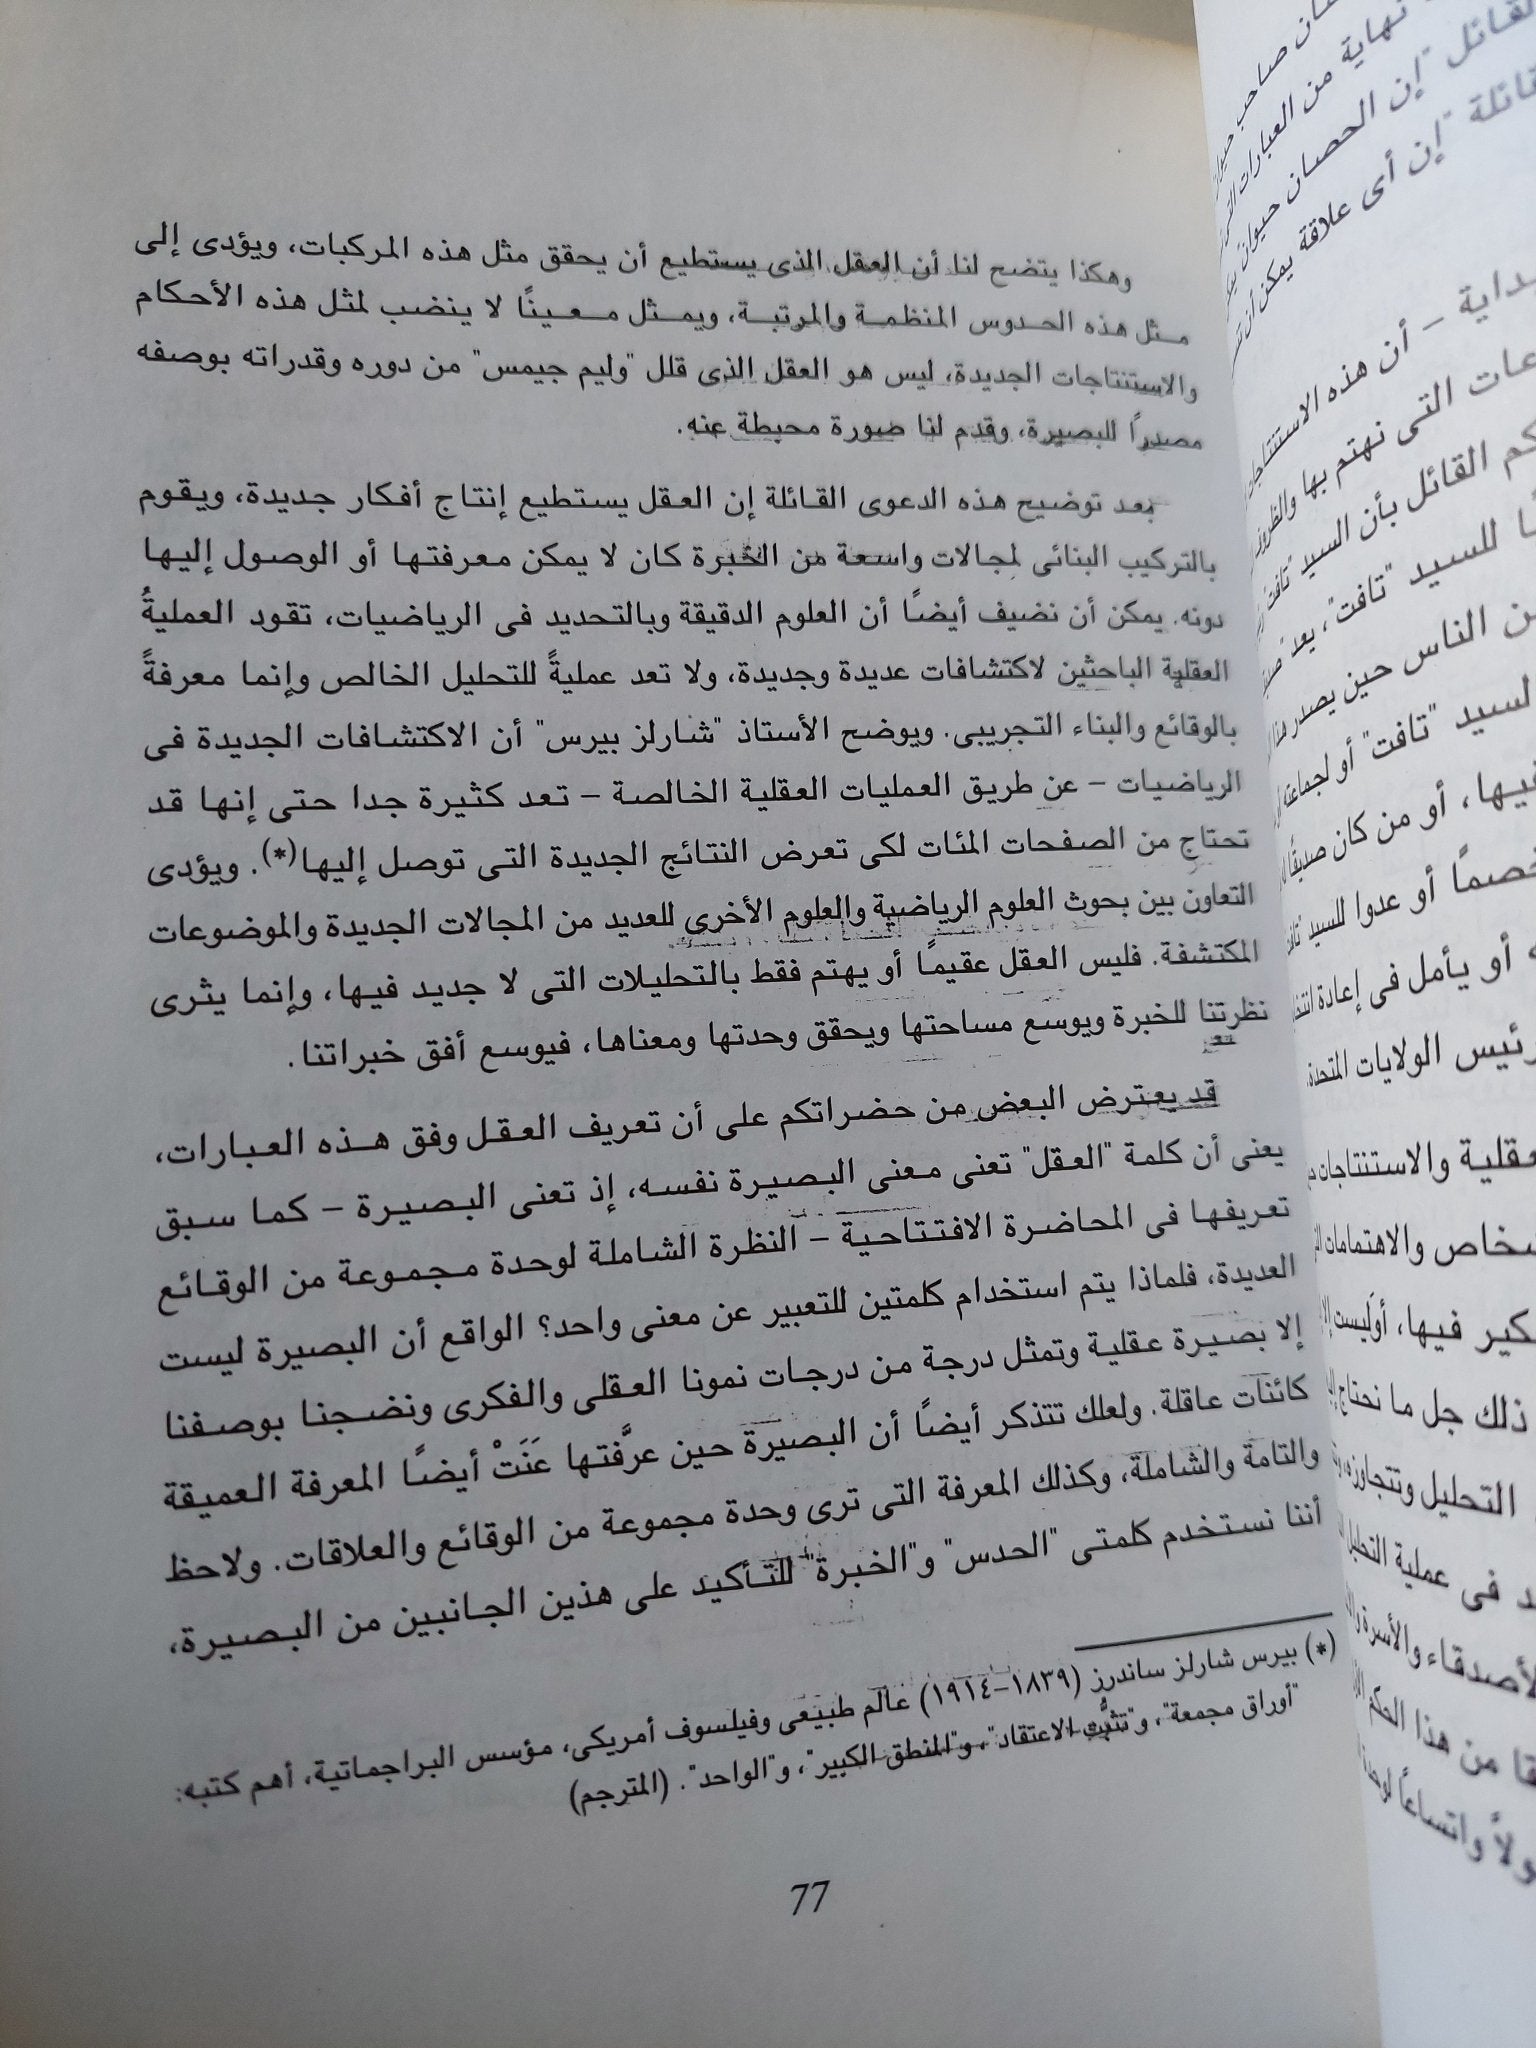 وهكذا يتضح لنا أن العقل الذى يستطيع أن يحقق مثل هذه المركبات، ويؤدى إلى
مثل هذه الحدوس المنظمة والمرتبة، ويمثل معينًا لا ينضب لمثل هذه الأحكام
والاستنتاجات الجديدة، ليس هو العقل الذى قلل "وليم جيمس" من دوره وقدراته بوصفه
مصدراً للبصيرة، وقدم لنا صورة محبطة عنه.
بعد توضيح هذه الدعوى القائلة إن العقل يستطيع إنتاج أفكار جديدة، ويقوم
بالتركيب البنائى لمجالات واسعة من الخبرة كان لا يمكن معرفتها أو الوصول إليها
دونه. يمكن أن نضيف أيضًا أن العلوم الدقيقة وبالتحديد فى الرياضيات، تقود العمليةُ
العقلية الباحثين لاكتشافات عديدة وجديدة، ولا تعد عمليةً للتحليل الخالص وإنما معرفةً
بالوقائع والبناء التجريبى. ويوضح الأستاذ "شارلز بيرس" أن الاكتشافات الجديدة فى
الرياضيات – عن طريق العمليات العقلية الخالصة – تعد كثيرة جدا حتى إنها قد
تحتاج من الصفحات المئات لكى تعرض النتائج الجديدة التى توصل إليها(*). ويؤدى
التعاون بين بحوث العلوم الرياضية والعلوم الأخرى للعديد من المجالات الجديدة والموضوعات
المكتشفة. فليس العقل عقيمًا أو يهتم فقط بالتحليلات التى لا جديد فيها، وإنما يثرى
نظرتنا للخبرة ويوسع مساحتها ويحقق وحدتها ومعناها، فيوسع أفق خبراتنا.
قد يعترض البعض من حضراتكم على أن تعريف العقل وفق هذه العبارات،
يعنى أن كلمة "العقل" تعنى معنى البصيرة نفسه، إذ تعنى البصيرة – كما سبق
تعريفها فى المحاضرة الافتتاحية – النظرة الشاملة لوحدة مجموعة من الوقائع
العديدة، فلماذا يتم استخدام كلمتين للتعبير عن معنى واحد؟ الواقع أن البصيرة ليست
إلا بصيرة عقلية وتمثل درجة من درجات نمونا العقلى والفكرى ونضجنا بوصفنا
كائنات عاقلة. ولعلك تتذكر أيضاً أن البصيرة حين عرَّفتها عَنَتْ أيضًا المعرفة العميقة
والتامة والشاملة، وكذلك المعرفة التى ترى وحدة مجموعة من الوقائع والعلاقات. ولاحظ
أننا نستخدم كلمتى "الحدس" و"الخبرة" للتأكيد على هذين الجانبين من البصيرة،
(*) بيرس شارلز ساندرز (١٨٣٩–١٩١٤) عالم طبيعى وفيلسوف أمريكى، مؤسس البراجماتية، أهم كتبه:
"أوراق مجمعة"، و"تثبُّت الاعتقاد"، و"المنطق الكبير"، و"الواحد". (المترجم)
77
نهاية من العبارات
القائل "إن الحصان حيوان
"إن أى علاقة يمكن أن
– أن هذه
التى نهتم بها
القائل بأن السيد
للسيد "تافت"، يعد
الناس حين يصدر
"تافت" أو لجماعته
فيها، أو من كان صديقًا
أو عدوا للسيد
أو يأمل فى إعادة
رئيس الولايات المتحدة.
والاستنتاجات
والاهتمامات
فيها، أوليست
ذلك جل ما نحتاج
التحليل
فى عملية التحليل
والأسرة
من هذا الحكم
واتساعاً